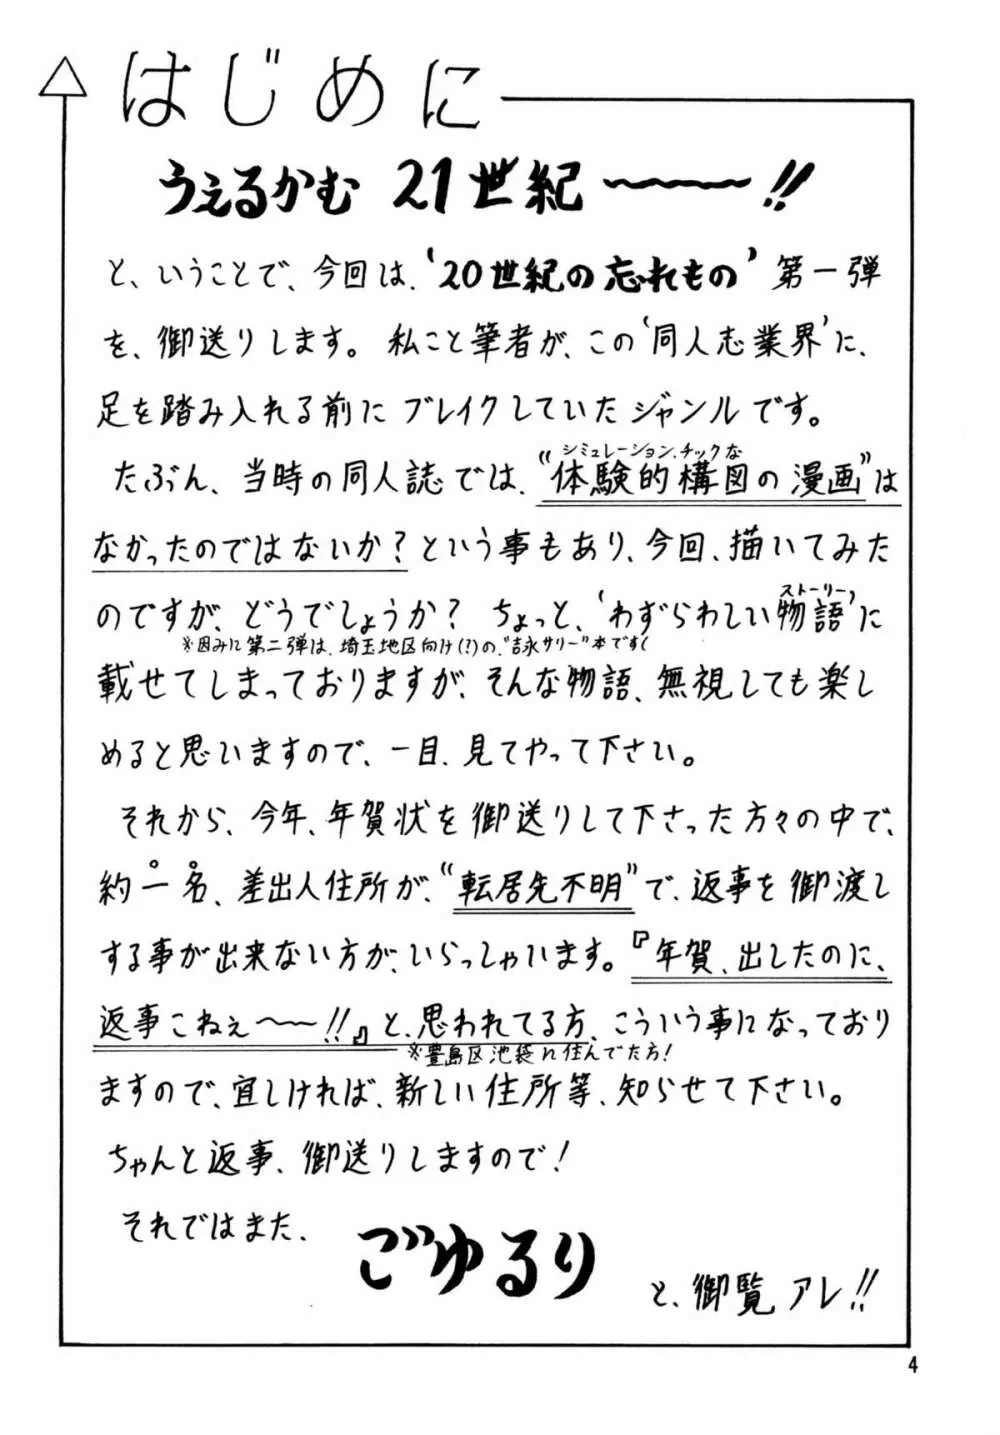 はじめに
うぇるかむ 21世紀〜〜〜!!
と、いうことで、今回は、‘20世紀の忘れもの’第一弾
を、御送りします。私こと筆者が、この‘同人志業界’に、
足を踏み入れる前にブレイクしていたジャンルです。
シミュレーション、チックな
たぶん、当時の同人誌では、“体験的構図の漫画”は
なかったのではないか？という事もあり、今回、描いてみた
ストーリー
のですが、どうでしょうか？ちょっと、‘わずらわしい物語’に
※因みに第二弾は、埼玉地区向け(?)の、“吉永サリー”本です
載せてしまっておりますが、そんな物語、無視しても楽し
めると思いますので、一目、見てやって下さい。
それから、今年、年賀状を御送りして下さった方々の中で、
約一名、差出人住所が、“転居先不明”で、返事を御渡し
する事が出来ない方が、いらっしゃいます。『年賀、出したのに、
返事こねぇ〜〜!!』と、思われてる方、こういう事になっており
※豊島区池袋に住んでた方！
ますので、宜しければ、新しい住所等、知らせて下さい。
ちゃんと返事、御送りしますので！
それではまた、
ごゆるり
と、御覧アレ!!
4